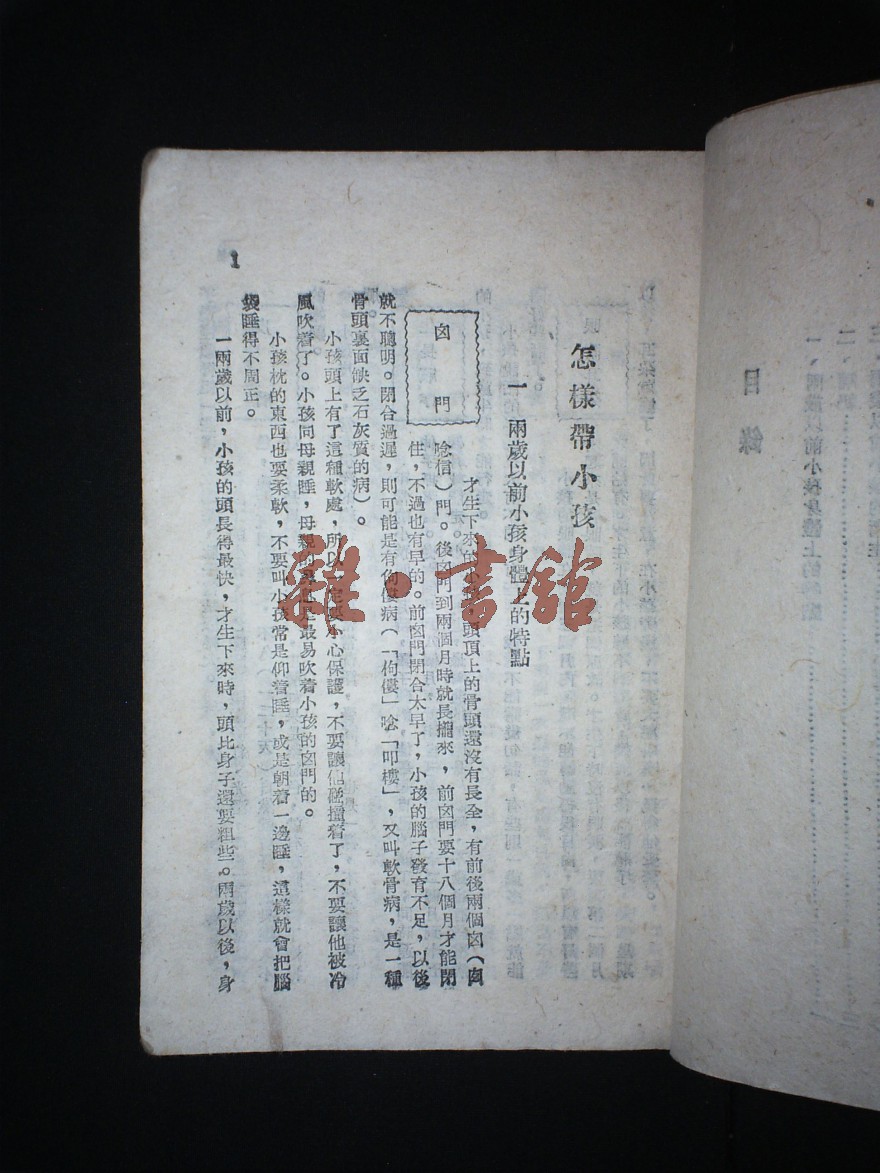 目錄
一、兩歲以前小孩身體上的
二、
怎樣帶小孩
一 兩歲以前小孩身體上的特點
囟門
才生下來的頭頂上的骨頭還沒有長全,有前後兩個囟(囟
唸信)門。後囟門到兩個月時就長攏來,前囟門要十八個月才能閉
住,不過也有早的。前囟門閉合太早了,小孩的腦子發育不足,以後
就不聰明。閉合過遲,則可能是有佝僂病(「枸僂」唸「叩樓」,又叫軟骨病,是一種
骨頭裏面缺乏石灰质的病)。
小孩頭上有了這種軟處,所以一定要小心保護,不要讓他碰撞着了,不要讓他被冷
風吹着了。小孩同母親睡,母親的是最易吹着小孩的囟門的。
小孩枕的東西也要柔軟,不要叫小孩常是仰着睡,或是朝着一邊睡,這樣就會把腦
袋睡得不周正。
一兩歲以前,小孩的頭長得最快,才生下來時,頭比身子還要粗些。兩歲以後,身
1
雜·書舘